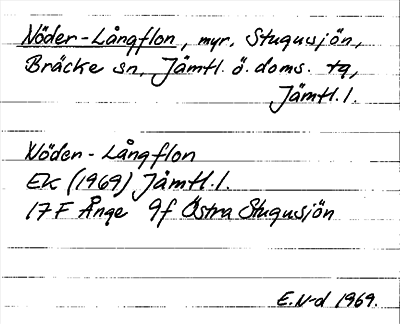 Nöder-Långflon, myr, Stugusjön,
Bräcke sn, Jämtl. ö. doms. tg,
Jämtl. l.
Nöder-Långflon
EK (1969) Jämtl. l.
17F Ånge 9f Östra Stugusjön
E.N-d 1969.